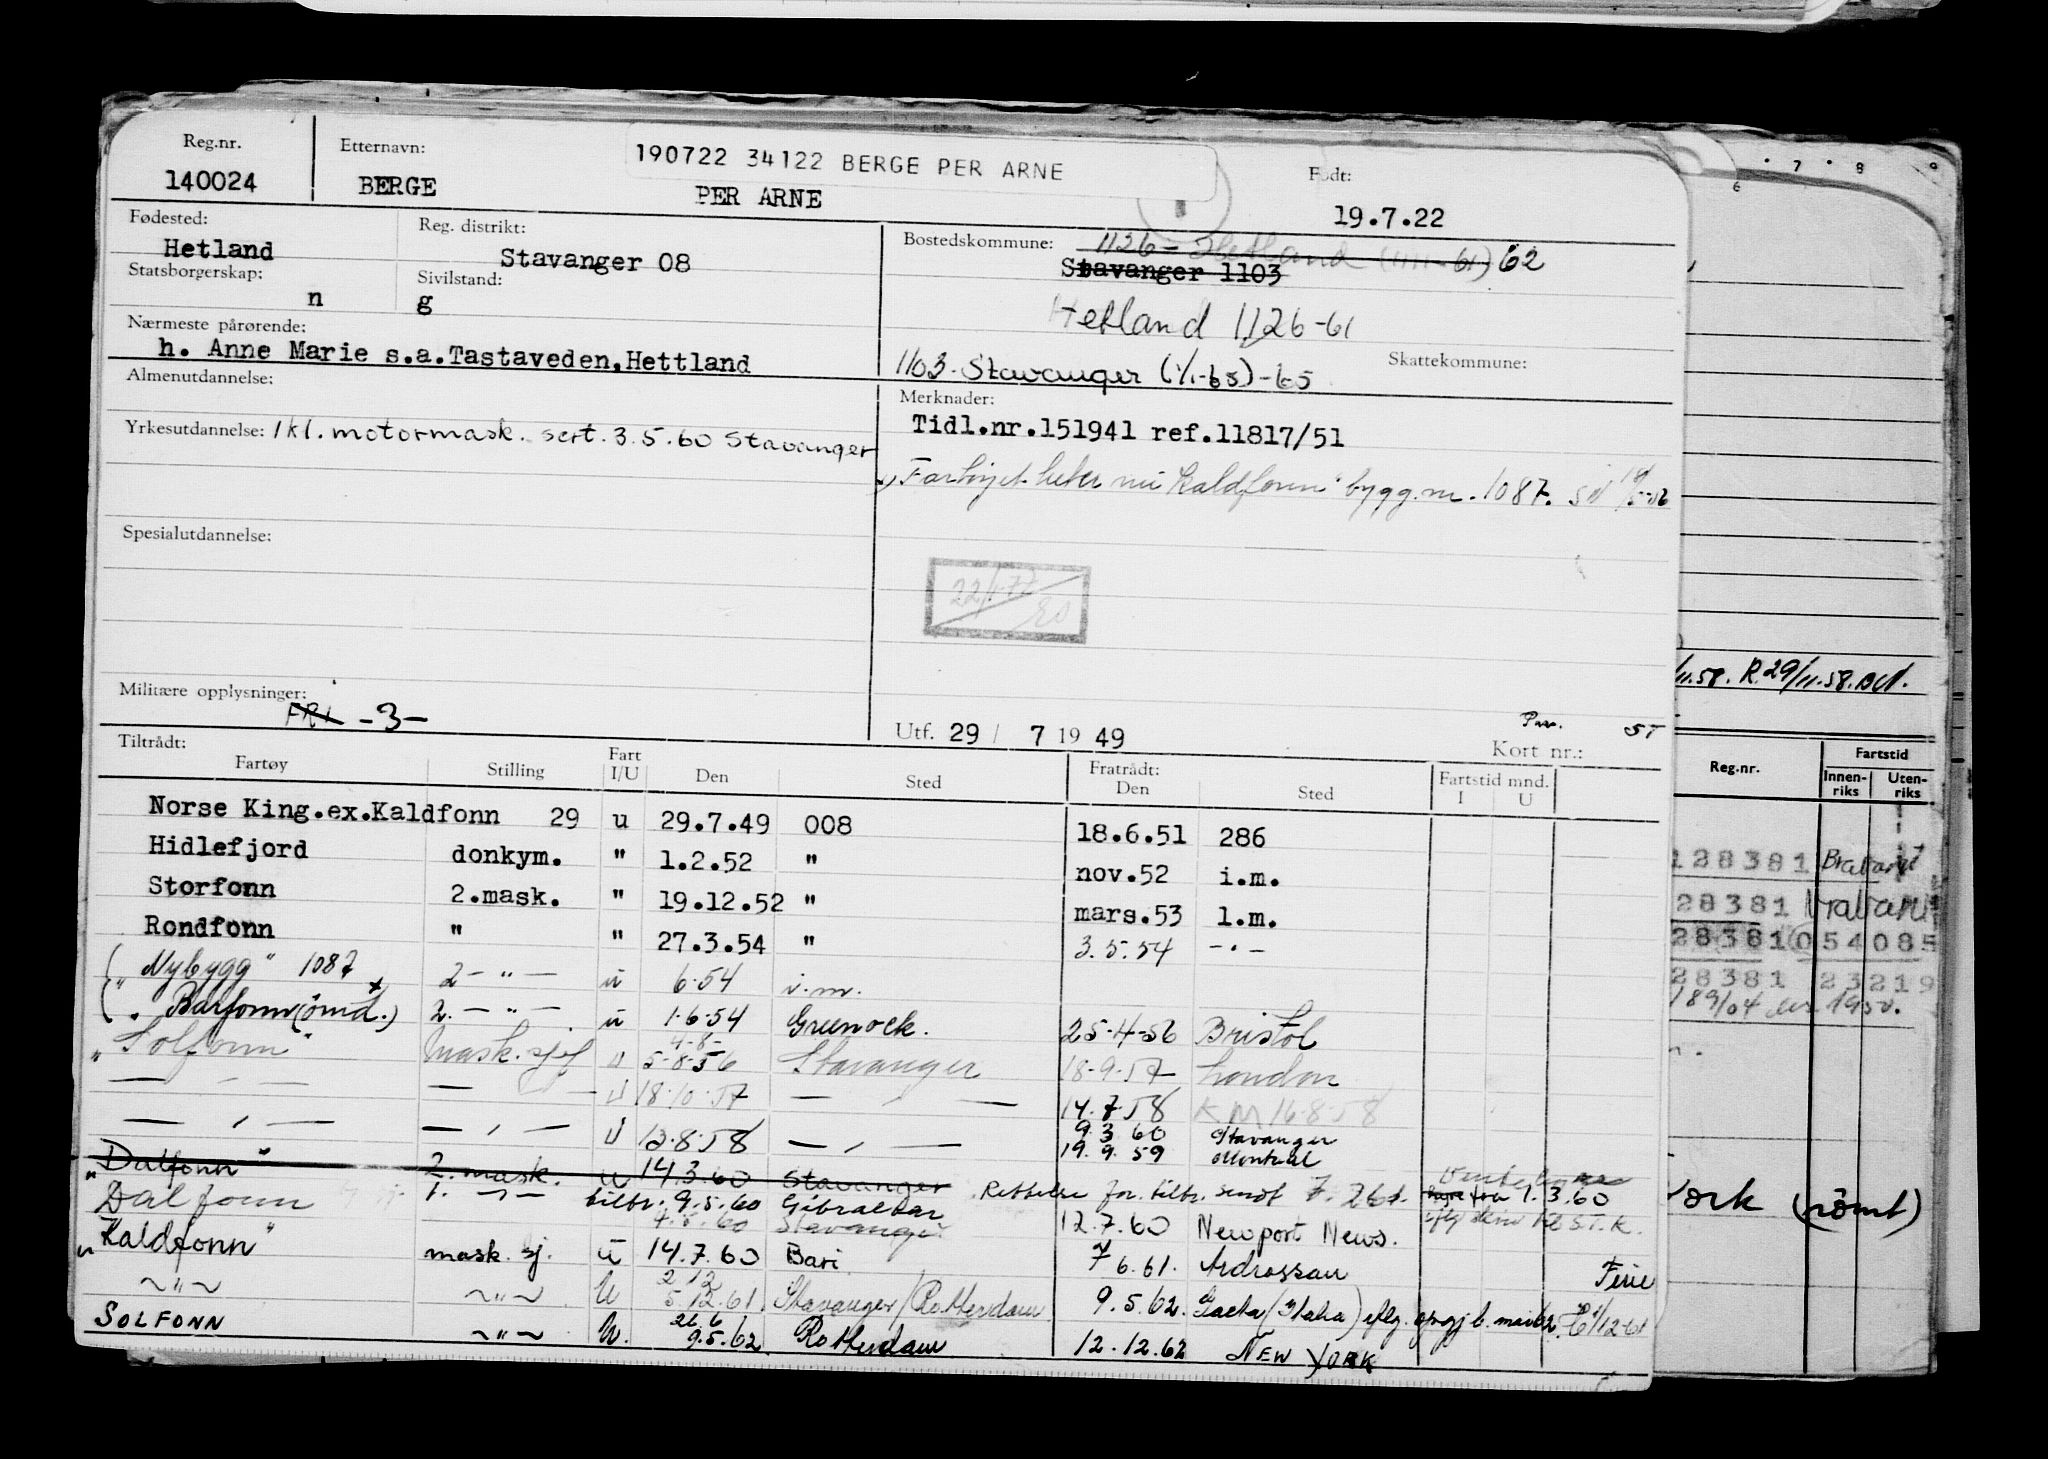 Reg.nr. Etternavn: 190722 34122 BERGE PER ARNE Født:
140024 BERGE PER ARNE 19.7.22
Fødested: Reg. distrikt: Bostedskommune: 1126- Hetland 62
Hetland Stavanger 08 Stavanger 1103
Statsborgerskap: Sivilstand:
n g Hetland 1126-61
Nærmeste pårørende:
h. Anne Marie s.a.Tastaveden,Hettland 1103 Stavanger (1/1-65)-65 Skattekommune:
Almenutdannelse: Merknader:
Yrkesutdannelse: 1 kl. motormask. sert. 3.5.60 Stavanger Tidl.nr.151941 ref.11817/51
Fartøyet heter nu "Kaldfonn" bygg.nr. 1087.
Spesialutdannelse:
Militære opplysninger:
FRI -3-
11.58. R.29/11.58.
Utf. 29/ 7 19 49 Kort nr.: ST
Tiltrådt: Fart Fratrådt: Fartstid mnd.
Fartøy Stilling I/U Den Sted Den Sted I U
Reg.nr. Fartstid
Innenriks Utenriks
Norse King.ex.Kaldfonn 29 u 29.7.49 008 18.6.51 286
Hidlefjord donkym. " 1.2.52 " nov.52 i.m.
Storfonn 2.mask. " 19.12.52 " mars.53 l.m.
Rondfonn " " 27.3.54 " 3.5.54 -"-
"Nybygg" 1087 2-"- u 6-54 i.m.
" Barfonn (ømd.) 2.-"- u 1-6-54 Greenock. 25-4-56 Bristol
4-8-
"Solfonn" Mask.sjef U 5-8-56 Stavanger 18-9-57 London
— " — — " — U 18.10.57 — " — 14.7.58 KM 16-8-58
— " — — " — U 12.8.58 — " — 9.3.60 Stavanger
19.9.59 Montreal
"Dalfonn" 2. mask. u 14.3.60 Stavanger
Dalfonn 1. -"- tiltr. 9.5.60 Gibraltar Rettelse for tiltr. sendt fra 1.3.60
4.5.60 Stavanger 12.7.60 Newport News.
"Kaldfonn" mask. sj. u 14.7.60 Bari 7 6.61. Ardrossan Ferie
2 12
~"~ ~"~ U 5.12.61. Stavanger/Rotterdam 9.5.62. Gaeta (Italia)
26.6
SOLFONN ~"~ U. 9.5.62. Rotterdam 12.12.62 NEW YORK
128381 Brabant
28381 Brabant
28381 054085
28381 23219
189/04
York (rømt)